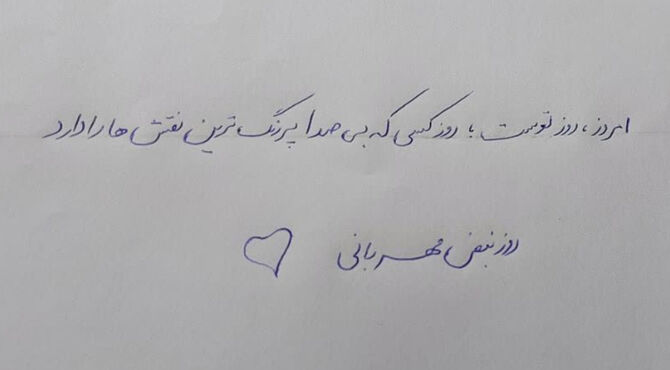 امروز، روز توست؛ روز کسی که بی صدا پررنگ ترین نقش ها را دارد
روز نبض مهربانی ♡